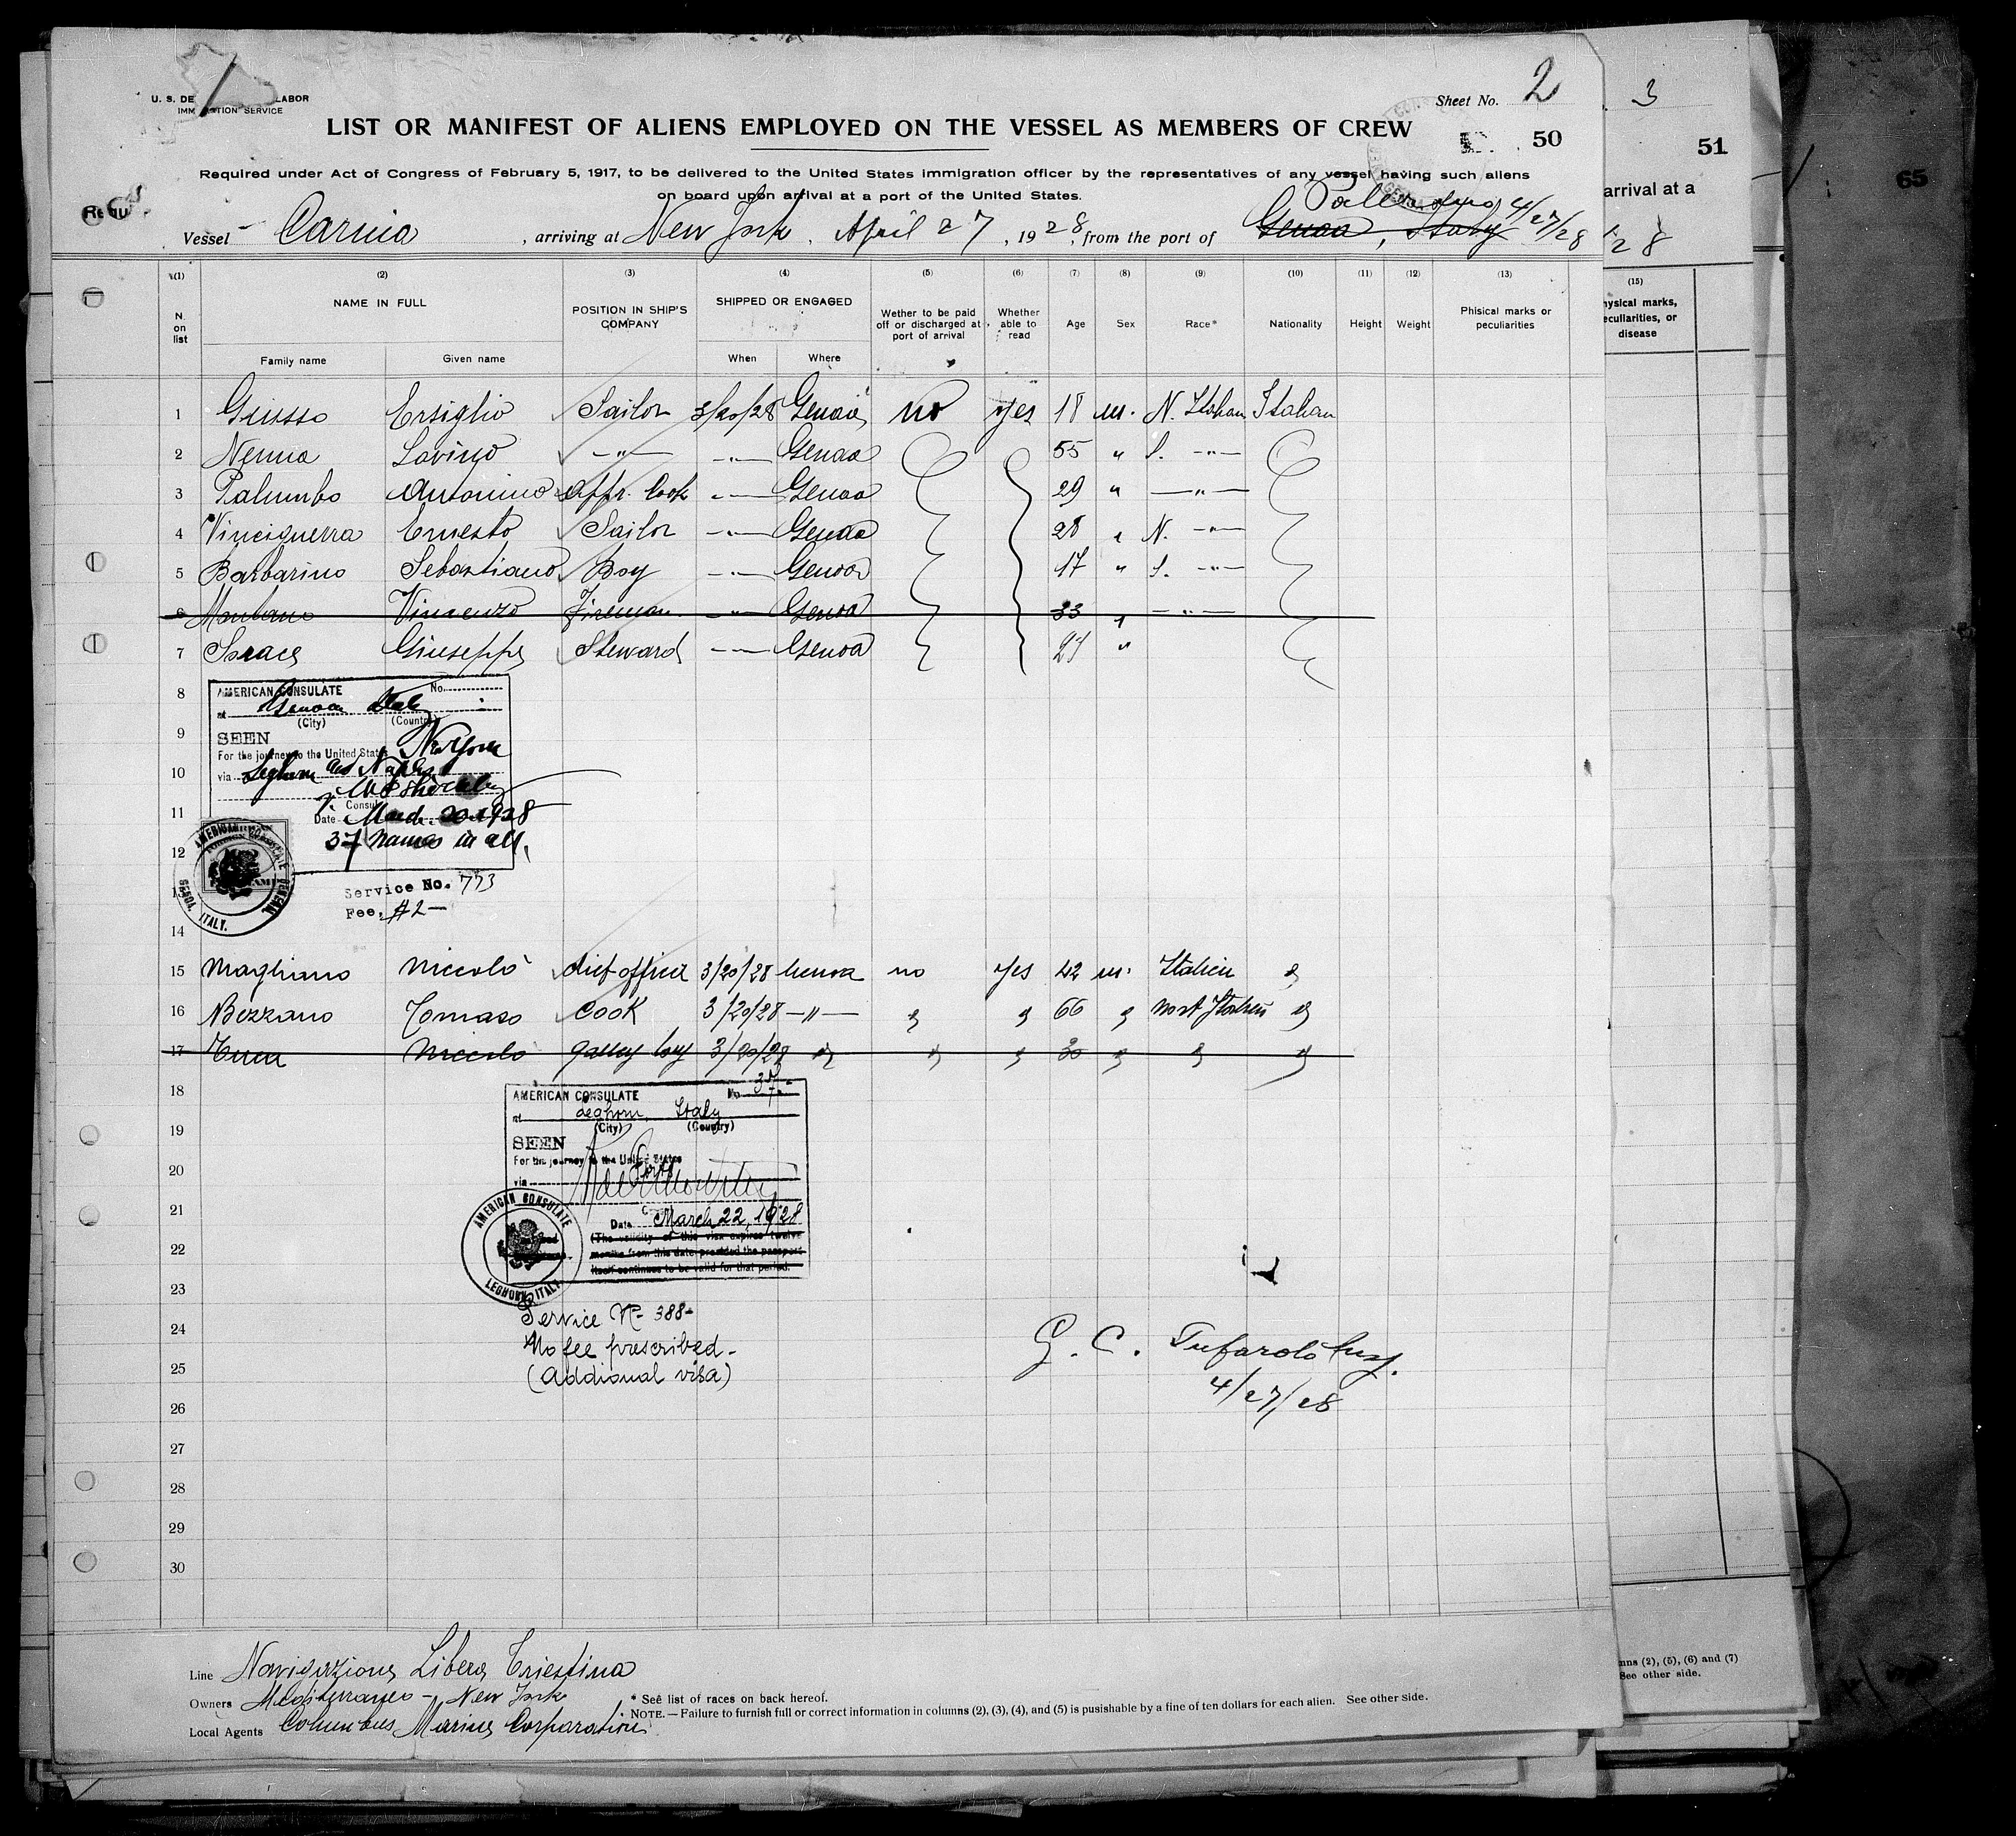 U. S. DE LABOR
IMM TION SERVICE
Sheet No. 2
3
LIST OR MANIFEST OF ALIENS EMPLOYED ON THE VESSEL AS MEMBERS OF CREW
50
51
65
Required under Act of Congress of February 5, 1917, to be delivered to the United States immigration officer by the representatives of any vessel having such aliens
on board upon arrival at a port of the United States.
arrival at a
4/27/28
Vessel Carnia, arriving at New York, April 27, 1928, from the port of Genoa, Italy
28
(1) (2) (3) (4) (5) (6) (7) (8) (9) (10) (11) (12) (13) (15)
N. on list NAME IN FULL POSITION IN SHIP'S COMPANY SHIPPED OR ENGAGED Wether to be paid off or discharged at port of arrival Whether able to read Age Sex Race* Nationality Height Weight Phisical marks or peculiarities
hysical marks, eculiarities, or disease
Family name Given name When Where
1 Giusso Ersiglio Sailor 3/20/28 Genoa no yes 18 m. N. Italian Italian
2 Nenna Savino —"— —"— Genoa 55 " S. —"—
3 Palumbo Antonino Appr. Cook —"— Genoa 29 " —"—
4 Vinciguerra Ernesto Sailor —"— Genoa 28 " N. —"—
5 Barbarino Sebastiano Boy —"— Genoa 17 " S. —"—
6 Vincenzo Fireman —"— Genoa 33 " —"—
7 Israce Giuseppe Steward —"— Genoa 27 "
8
AMERICAN CONSULATE No.
at Genoa Italy
(City) (Country)
9
SEEN
For the journey to the United States New York
10
via Leghorn and Naples
11
Consul
Date March 20 1928
12
37 names in all.
AMERICAN CONSULATE GENERAL GENOA, ITALY.
13
Service No. 773
Fee, $2—
14
15 Magliano Niccolò chief officer 3/20/28 Genoa no yes 42 m. Italien "
16 Bozzano Tomaso Cook 3/20/28 —"— " " 66 " North Italien "
17 Niccolo galley boy 3/20/28 " " " 30 " " "
18
AMERICAN CONSULATE No. 37-
at Leghorn Italy
19
(City) (Country)
SEEN
20
For the journey to the United States
via
21
Date March 22, 1928
22
(The validity of this visa expires twelve
months from this date provided the passport
itself continues to be valid for that period.
AMERICAN CONSULATE LEGHORN, ITALY
23
24
Service No 388-
No fee prescribed-
25
(Addional visa)
G. C. Tufarolo Insp.
4/27/28
26
27
28
29
30
Line Navigazione Libera Triestina
Owners Mediterraneo - New York
Local Agents Columbus Marine Corporation
* See list of races on back hereof.
NOTE. — Failure to furnish full or correct information in columns (2), (3), (4), and (5) is pusishable by a fine of ten dollars for each alien. See other side.
mns (2), (5), (6) and (7)
See other side.